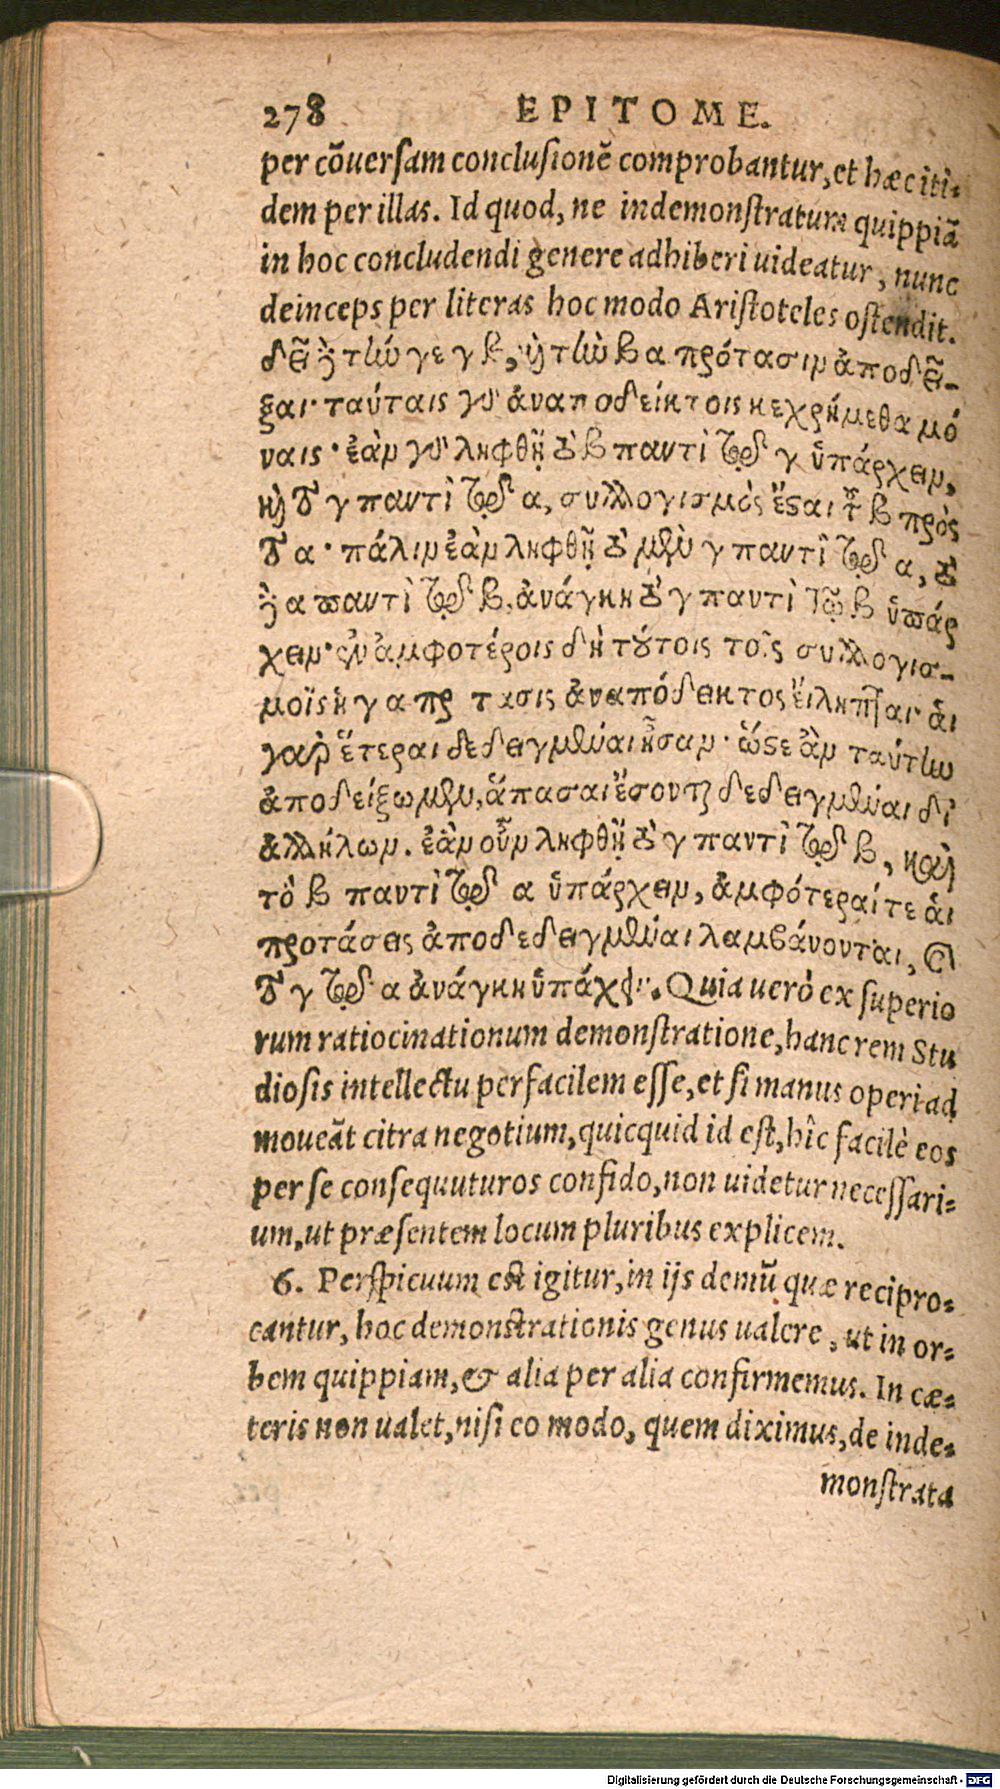 278 EPITOME.
per cōuersam conclusionē comprobantur, et hæc iti-
dem per illas. Id quod, ne indemonstratum quippiā
in hoc concludendi genere adhiberi uideatur, nunc
deinceps per literas hoc modo Aristoteles ostendit.
δεῖ ἢ τὴν γε γβ, ἢ τὴν βα πρότασιν ἀποδεῖ-
ξαι· ταύταις γὸ ἀναποδείκτοις κεχρήμεθα μό
ναις· ἐὰν γὸ ληφθῇ τὸ β παντὶ τῷ γ ὑπάρχειν,
καὶ τὸ γ παντὶ τῷ α, συλλογισμὸς ἔσαι τοῦ β πρὸς
τὸ α· πάλιν ἐὰν ληφθῇ τὸ μὲν γ παντὶ τῷ α, τὸ
ἢ α παντὶ τῷ β, ἀνάγκη τὸ γ παντὶ τῷ β ὑπάρ
χειν· ἐν ἀμφοτέροις δὴ τούτοις τοῖς συλλογισ-
μοῖς ἡ γα πρ τασις ἀναπόδεικτος εἴληπται· αἱ
γὰρ ἕτεραι δεδειγμέναι ἦσαν· ὥστε ἂν ταύτην
ἀποδείξωμεν, ἅπασαι ἔσονται δεδειγμέναι δι
ἀλλήλων. ἐὰν οὖν ληφθῇ τὸ γ παντὶ τῷ β, καὶ
τὸ β παντὶ τῷ α ὑπάρχειν, ἀμφότεραί τε αἱ
προτάσεις ἀποδεδειγμέναι λαμβάνονται, καὶ
τὸ γ τῷ α ἀνάγκη ὑπάχειν. Quia uerò ex superio
rum ratiocinationum demonstratione, hanc rem Stu
diosis intellectu perfacilem esse, et si manus operi ad
moueāt citra negotium, quicquid id est, hîc facilè eos
per se consequuturos confido, non uidetur necessari-
um, ut præsentem locum pluribus explicem.
6. Perspicuum est igitur, in ijs demū quæ recipro-
cantur, hoc demonstrationis genus ualere, ut in or-
bem quippiam, & alia per alia confirmemus. In cæ-
teris non ualet, nisi eo modo, quem diximus, de inde-
monstrata
Digitalisierung gefördert durch die Deutsche Forschungsgemeinschaft - DFG